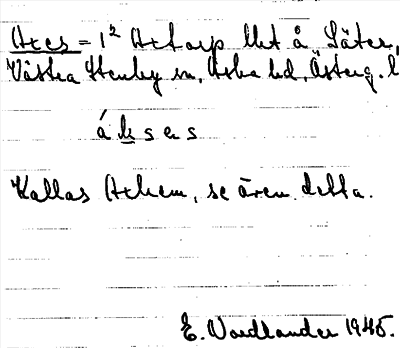 Axes = 1² Axtorp llt å Säter,
Västra Stenby sn, Aska hd, Österg. l
á k s e s
Kallas Axhem, se även detta.
E. Nordlander 1945.